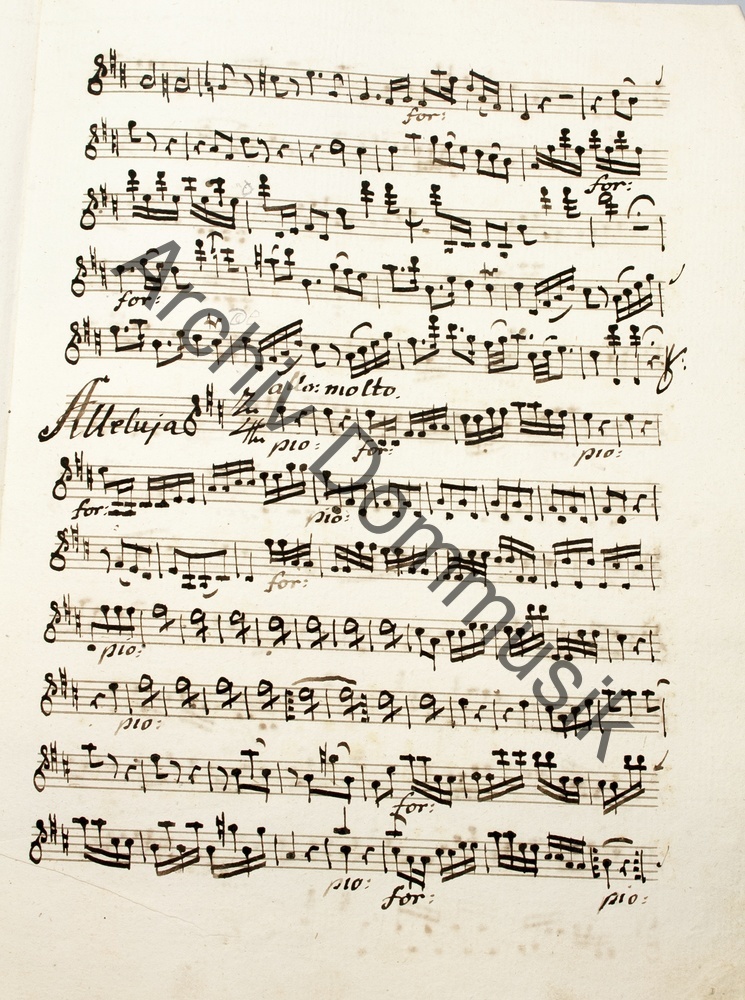 for:
for:
for:
allo: molto.
Alleluja
2/4
pio: for: pio:
for: pio:
for:
pio:
pio:
for:
pio: for: pio:
Archiv Dommusik